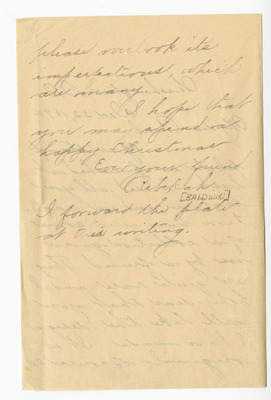 please overlook its
imperfections which
are many.
I hope that
you may spend a
happy Christmas
Ever your friend
Rebekah
[BALDWIN]
I forward the plate
at this writing.